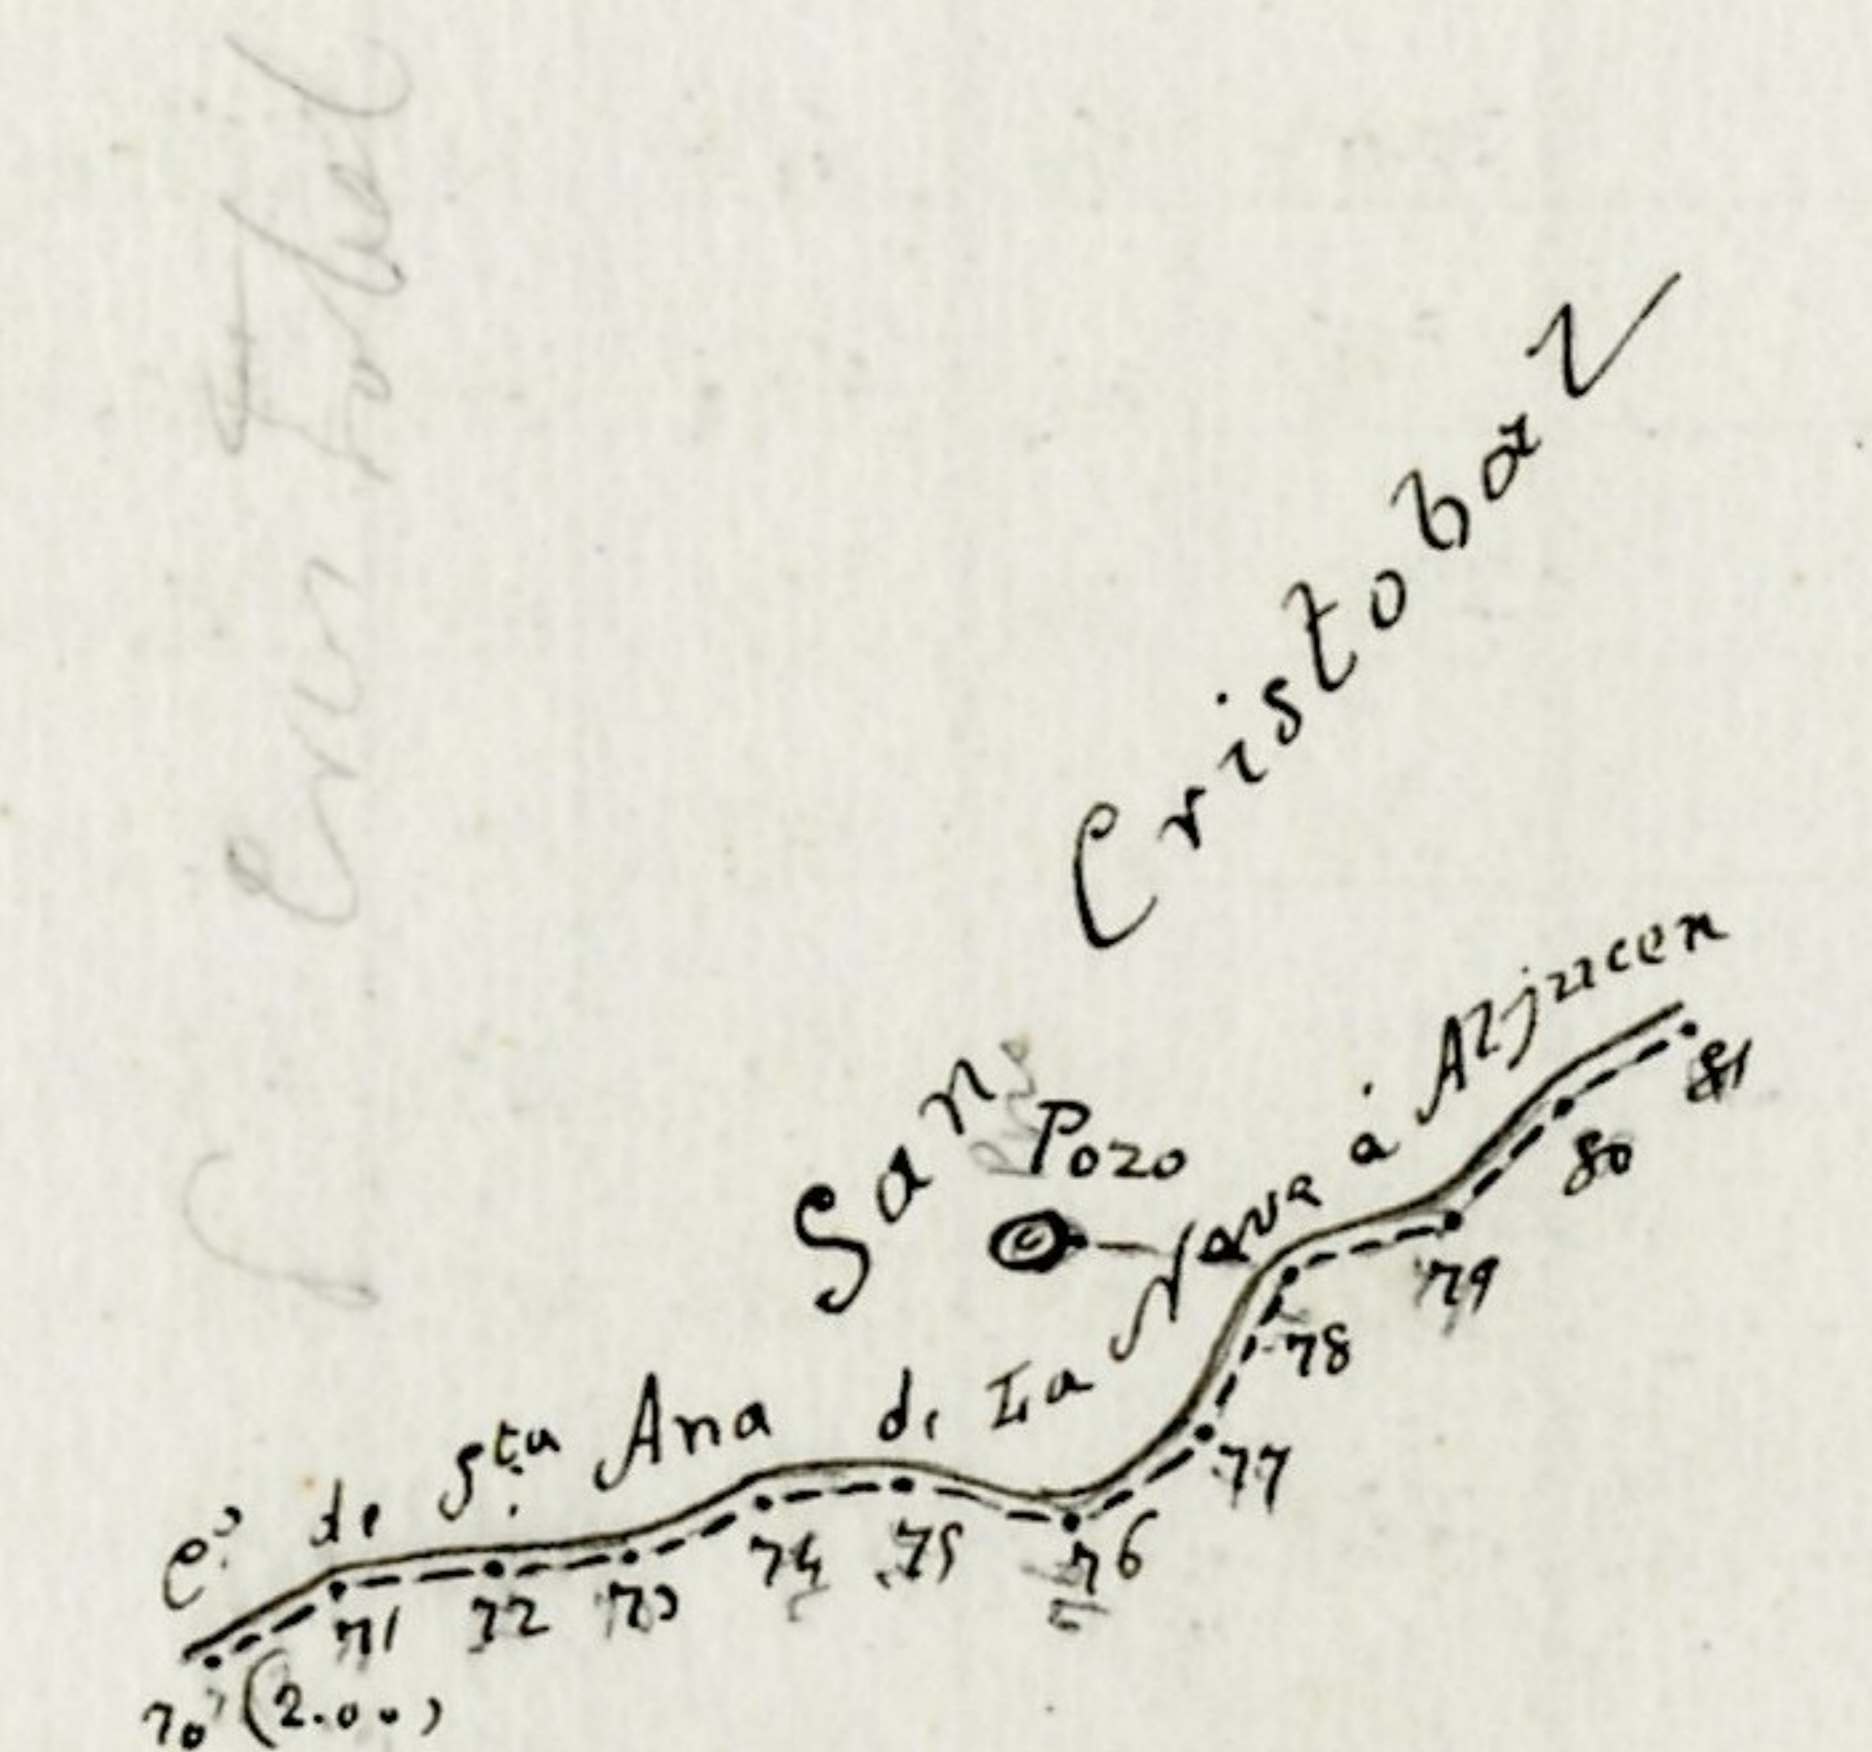 San Cristobal
Pozo
C.º de S.ta Ana de La Nava á Aljucen
70 (2.00)
71
72
73
74
75
76
77
78
79
80
81